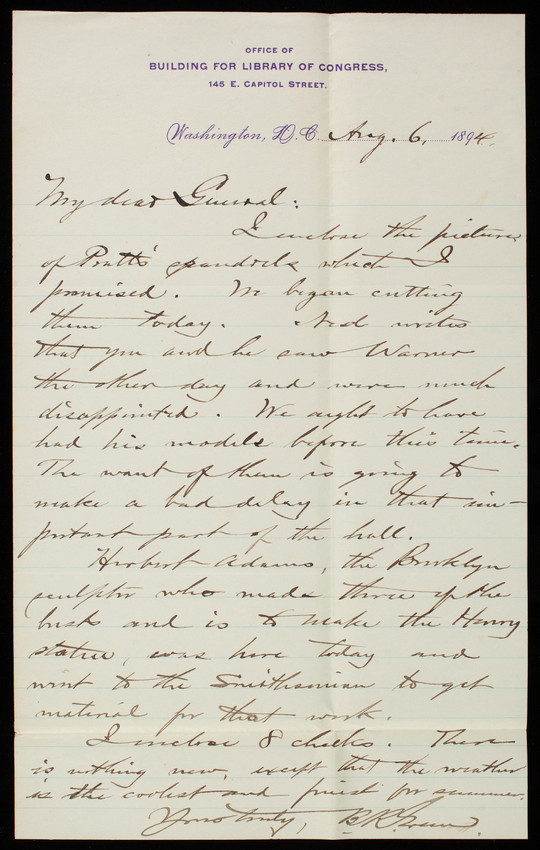 OFFICE OF
BUILDING FOR LIBRARY OF CONGRESS,
145 E. CAPITOL STREET.
Washington, D.C. Aug. 6, 1894.
My dear General:
I enclose the pictures
of Pratt's spandrels which I
promised. We began cutting
them today. Ned writes
that you and he saw Warner
the other day and were much
disappointed. We ought to have
had his models before this time.
The want of them is going to
make a bad delay in that im-
portant part of the hall.
Herbert Adams, the Brooklyn
sculptor who made three of the
busts and is to make the Henry
statue, was here today and
went to the Smithsonian to get
material for that work.
I enclose 8 checks. There
is nothing new, except that the weather
is the coolest and finest for summer.
Yours truly, B R Green.